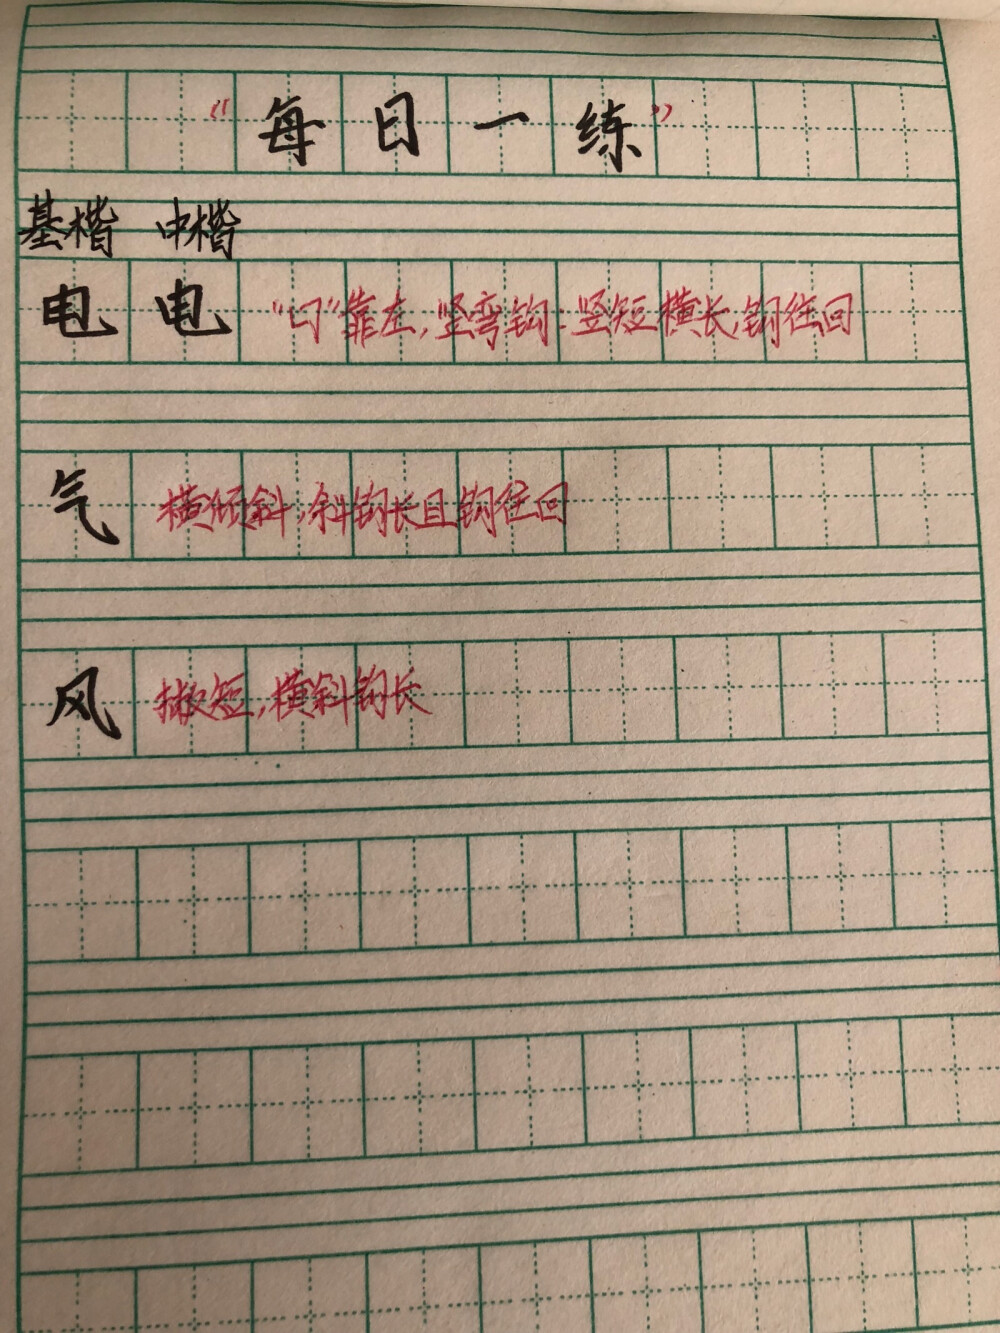 “每日一练”
基楷 中楷
电 电 “曰”靠左,竖弯钩:竖短横长,钩往回
气 横倾斜,斜钩长且钩往回
风 撇短,横斜钩长